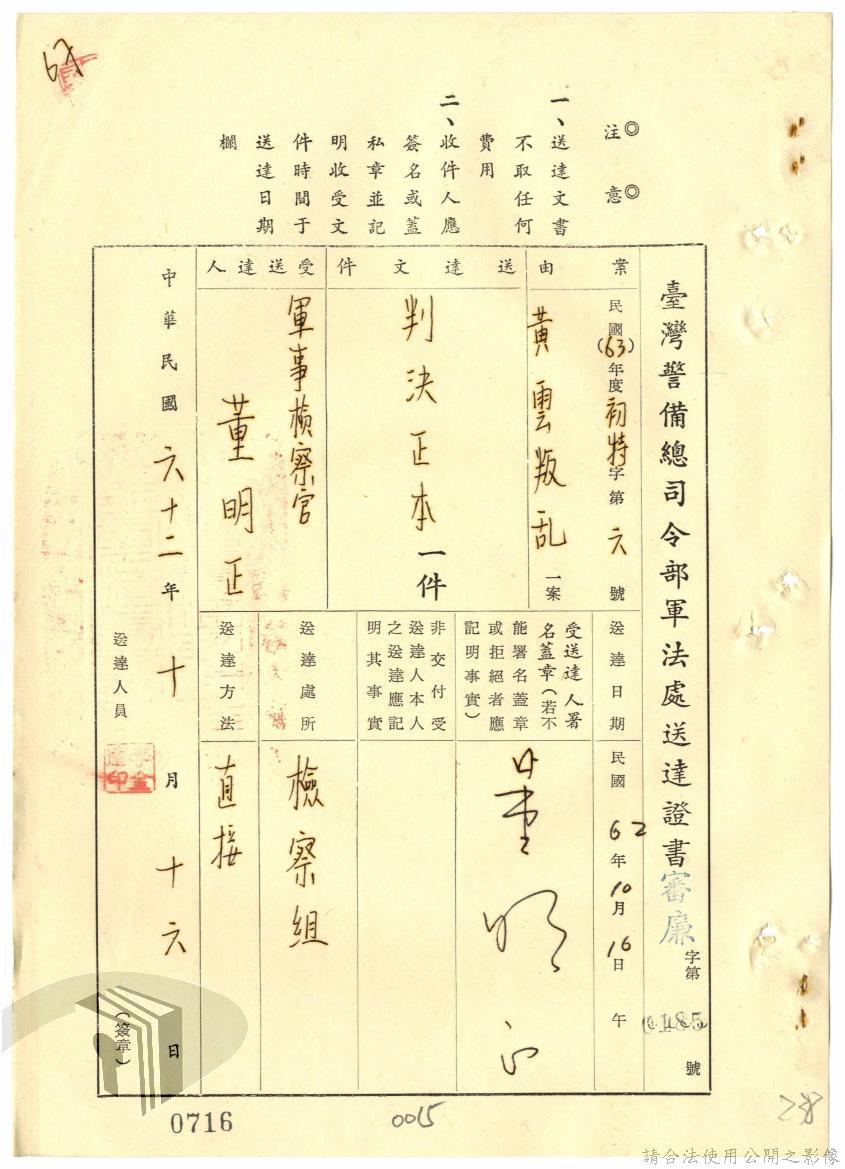 67
◎注意◎
一、送達文書
不取任何
費用
二、收件人應
簽名或蓋
私章並記
明收受文
件時間于
送達日期
欄
臺灣警備總司令部軍法處送達證書審廉字第 號
案由
民國(63)年度初特字第六號
黃雲叛乱一案
送達文件
判決正本一件
受送達人
軍事檢察官
董明正
送達日期
民國62年10月16日 午
受送達人署
名蓋章(若不
能署名蓋章
或拒絕者應
記明事實)
董明正
非交付受
送達人本人
之送達應記
明其事實
送達處所
檢察組
送達方法
直接
中華民國六十二年十月十六日
送達人員
(簽章)
0716
0015
238
請合法使用公開之影像